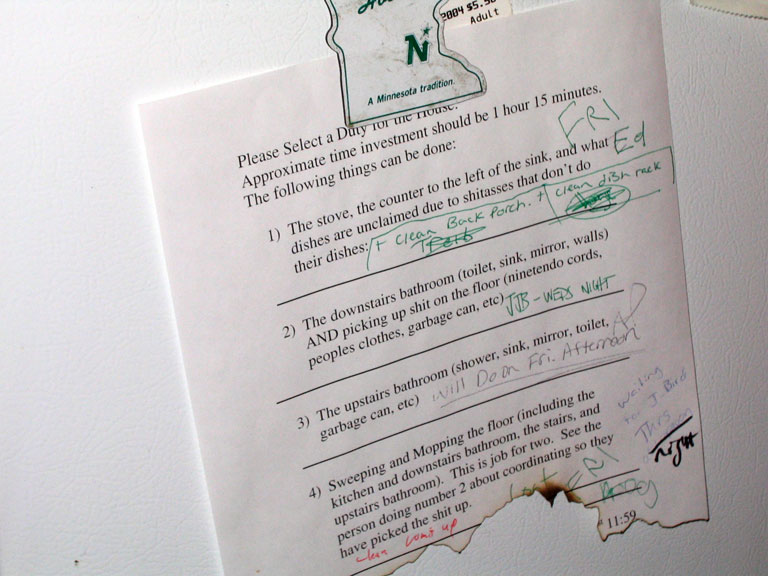 2004 $5.50
Adult
N
A Minnesota tradition.
Please Select a Duty for the House.
Approximate time investment should be 1 hour 15 minutes.
The following things can be done:
FRI
Ed
1) The stove, the counter to the left of the sink, and what
dishes are unclaimed due to shitasses that don't do
their dishes:
+ clean Back Porch. + clean dish rack
2) The downstairs bathroom (toilet, sink, mirror, walls)
AND picking up shit on the floor (ninetendo cords,
peoples clothes, garbage can, etc)
JJB - WEDS NIGHT
3) The upstairs bathroom (shower, sink, mirror, toilet,
garbage can, etc)
will Do on Fri. Afternoon
4) Sweeping and Mopping the floor (including the
kitchen and downstairs bathroom, the stairs, and
upstairs bathroom). This is job for two. See the
person doing number 2 about coordinating so they
have picked the shit up.
waiting
for J. Bird
Thurs
night
FRI
11:59